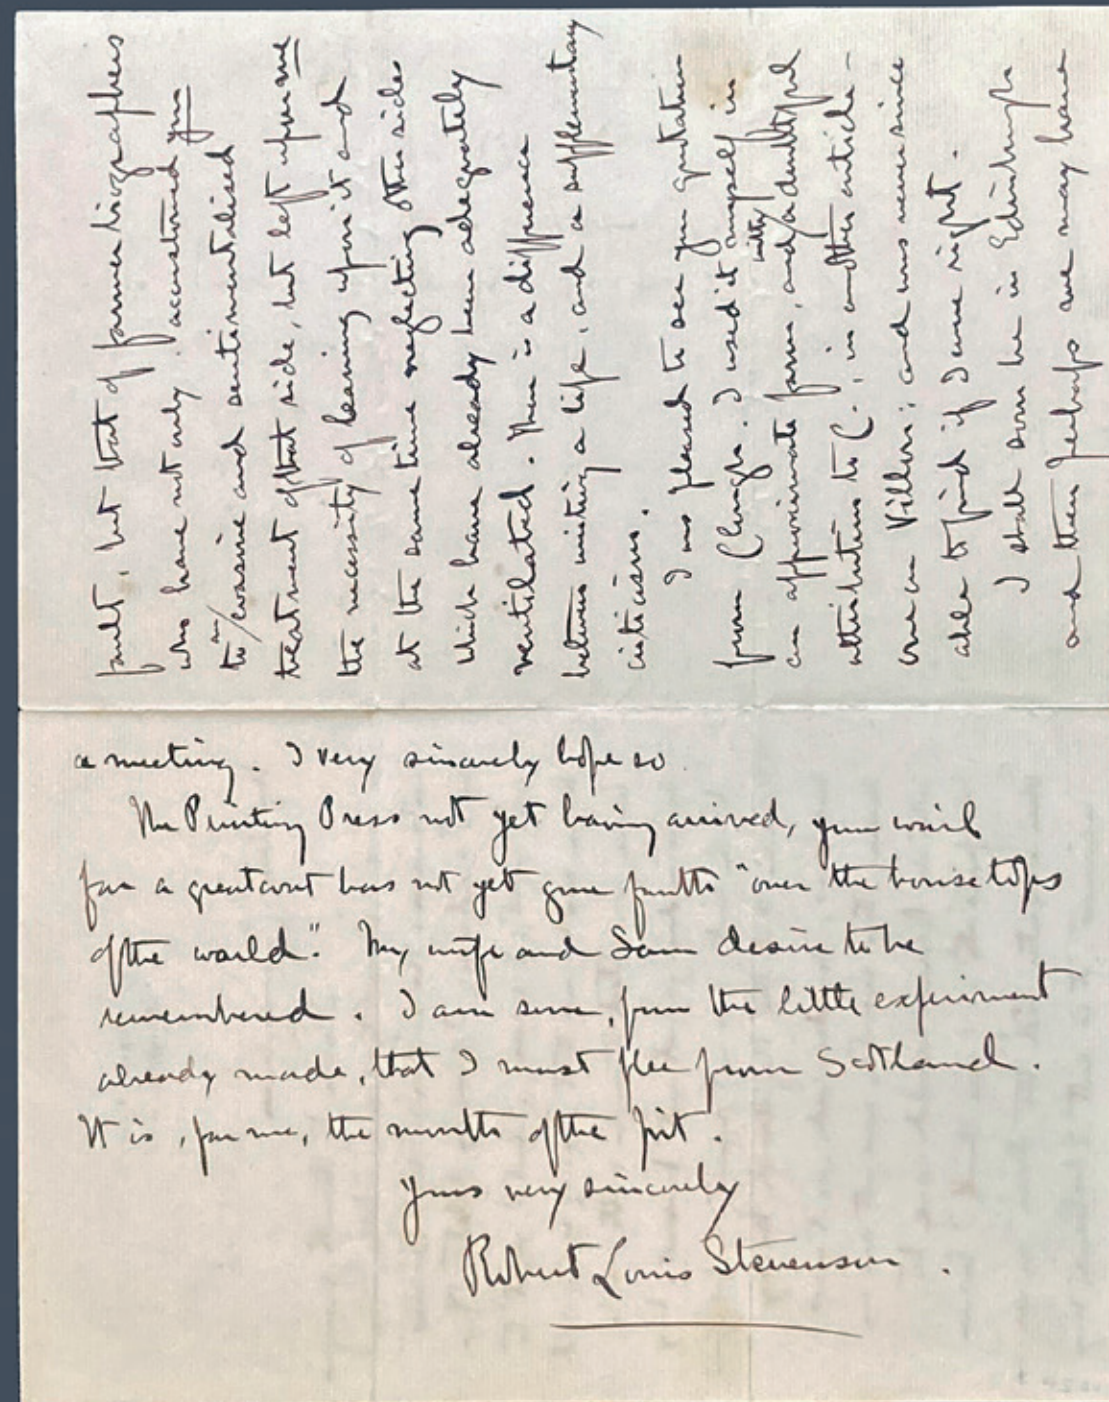 fault, but that of former biographers
who have not only accustomed you
to an evasive and sentimentalised
treatment of that side, but left upon me
the necessity of leaning upon it and
at the same time neglecting other sides
which have already been adequately
ventilated. There is a difference
between writing a life, and a supplementary
criticism.
I was pleased to see your quotation
from Clough. I used it myself in
an approximate form, and with a doubtful
attribution to C., in another article –
one on Villon: and was never since
able to find if I were right.
I shall soon be in Edinburgh
and then perhaps we may have
a meeting. I very sincerely hope so
The Printing Press not yet having arrived, your wail
for a greatcoat has not yet gone forth "over the housetops
of the world." My wife and Sam desire to be
remembered. I am sure, from the little experiment
already made, that I must flee from Scotland.
It is, for me, the mouth of the pit.
Yours very sincerely
Robert Louis Stevenson.